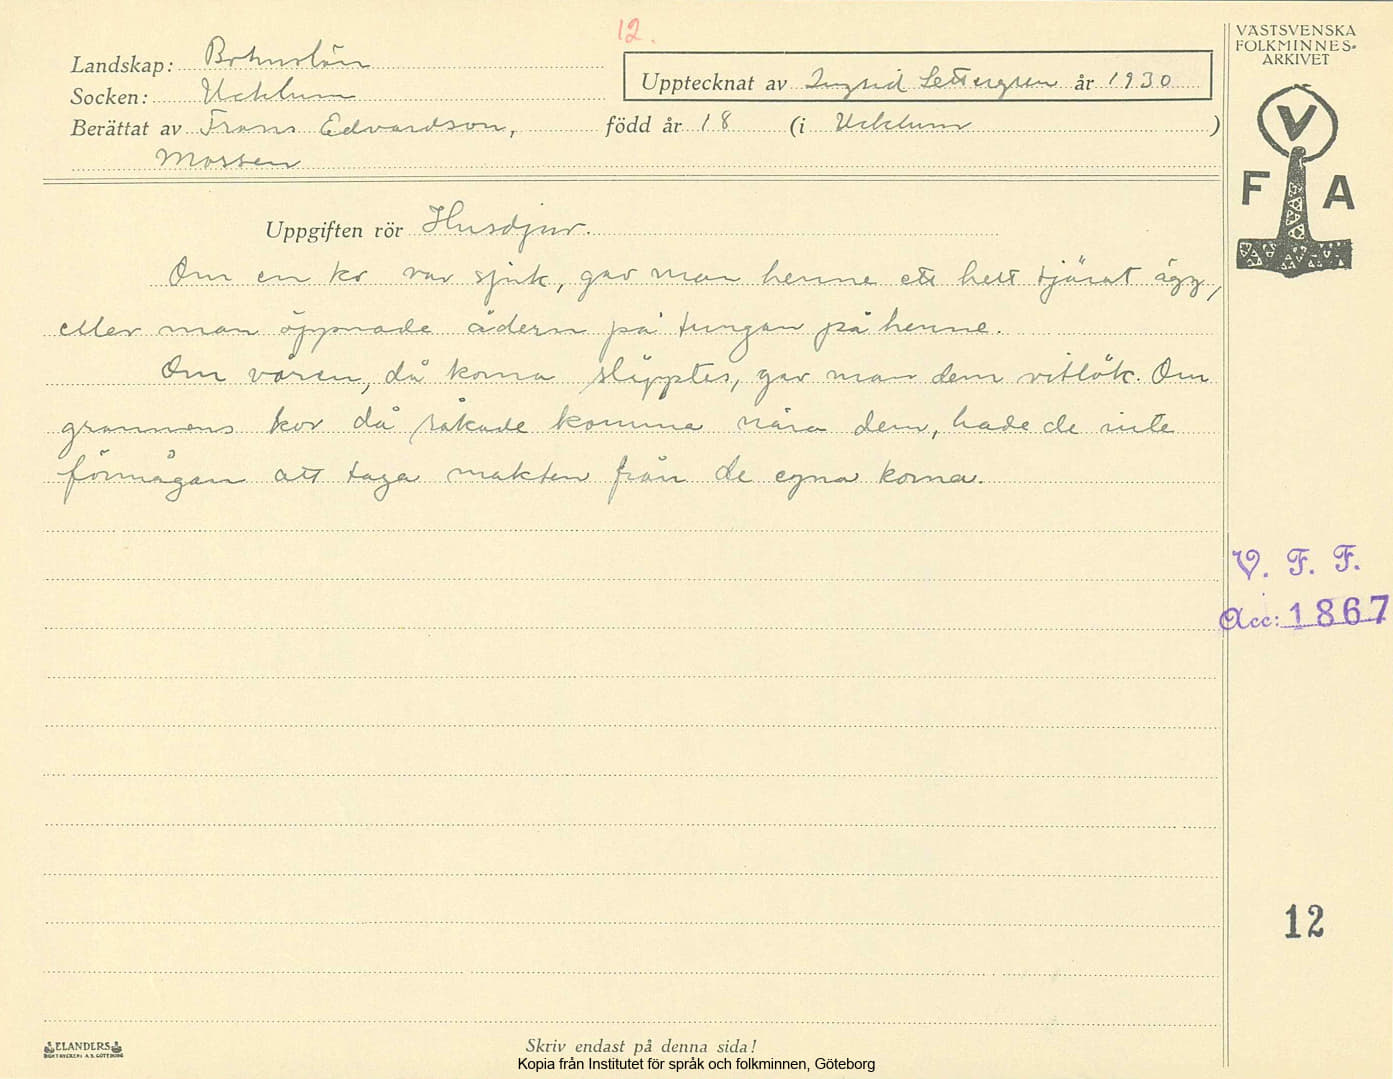 12.
VÄSTSVENSKA
FOLKMINNES-
ARKIVET
Landskap: Bohuslän
Socken: Ucklum
Upptecknat av Ingrid Settergren år 1930
Berättat av Frans Edvardson, född år 18 (i Ucklum )
Mossen
V
F A
Uppgiften rör Husdjur.
Om en ko var sjuk, gav man henne ett helt tjärat ägg,
eller man öppnade ådern på tungan på henne.
Om våren, då korna släpptes, gav man dem vitlök. Om
grannens kor då råkade komma nära dem, hade de inte
förmågan att taga makten från de egna korna.
V. F. F.
Acc: 1867
12
ELANDERS
BOKTRYCKERI A.B. GÖTEBORG
Skriv endast på denna sida!
Kopia från Institutet för språk och folkminnen, Göteborg